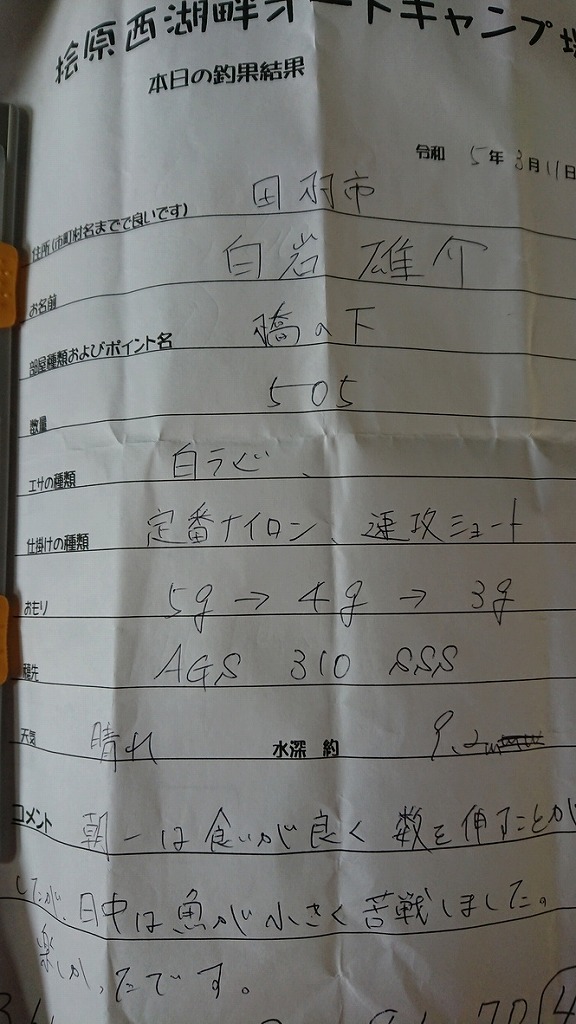 桧原西湖畔オートキャンプ場
本日の釣果結果
令和 5年 3月11日
住所(市町村名までで良いです) 田羽市
お名前 白岩 雄介
部屋種類およびポイント名 橋の下
数量 505
エサの種類 白ラビ、
仕掛けの種類 定番ナイロン、速攻ショート
おもり 5g → 4g → 3g
穂先 AGS 310 SSS
天気 晴れ 水深 約 9.2m
コメント 朝一は食いが良く数を伸すことが
したが、日中は魚が小さく苦戦しました。
楽しかったです。